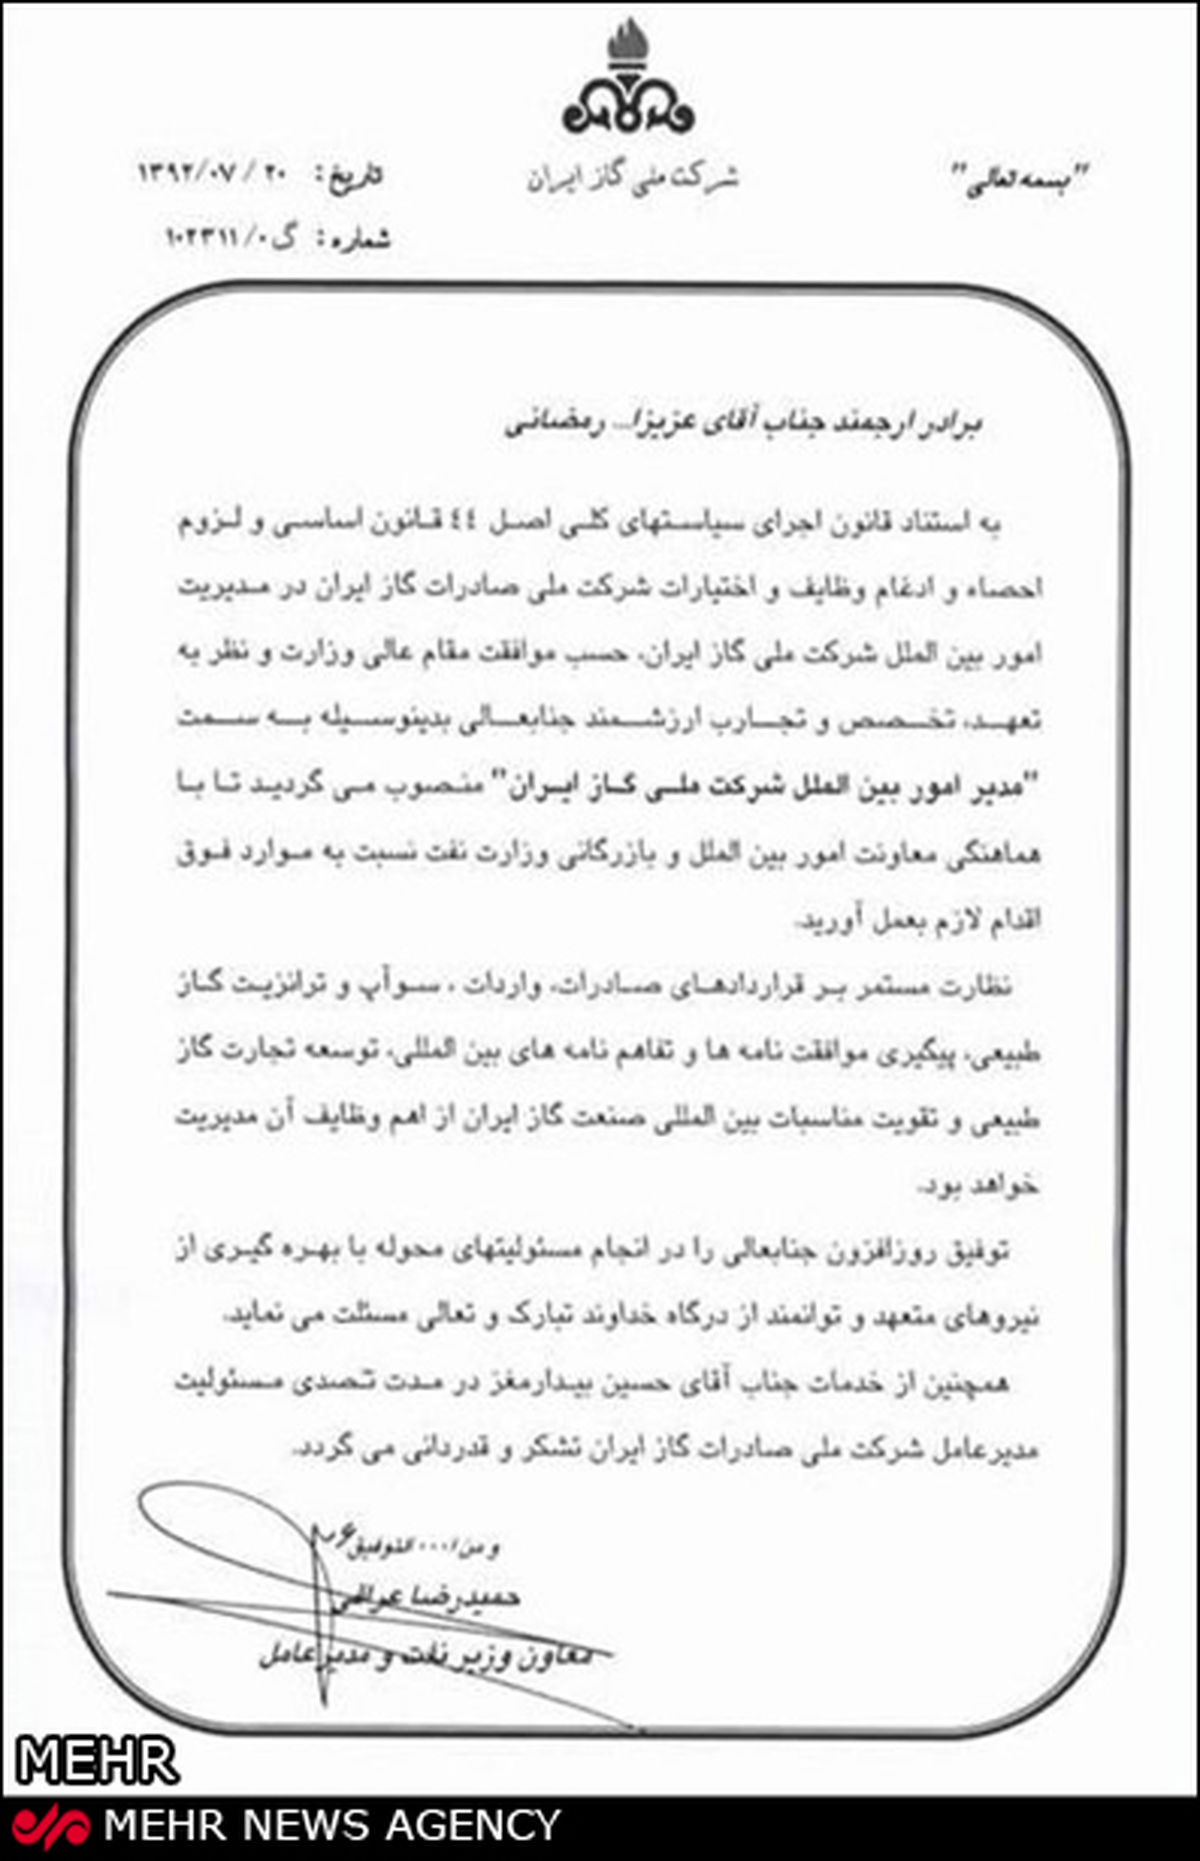 "بسمه تعالی"
شرکت ملی گاز ایران
تاریخ: ۱۳۹۲/۰۷/۲۰
شماره: گ۰/۱۰۲۳۱۱
برادر ارجمند جناب آقای عزیزا... رمضانی
به استناد قانون اجرای سیاستهای کلی اصل ٤٤ قانون اساسی و لزوم
احصاء و ادغام وظایف و اختیارات شرکت ملی صادرات گاز ایران در مدیریت
امور بین الملل شرکت ملی گاز ایران، حسب موافقت مقام عالی وزارت و نظر به
تعهد، تخصص و تجارب ارزشمند جنابعالی بدینوسیله به سمت
"مدیر امور بین الملل شرکت ملی گاز ایران" منصوب می گردید تا با
هماهنگی معاونت امور بین الملل و بازرگانی وزارت نفت نسبت به موارد فوق
اقدام لازم بعمل آورید.
نظارت مستمر بر قراردادهای صادرات، واردات ، سوآپ و ترانزیت گاز
طبیعی، پیگیری موافقت نامه ها و تفاهم نامه های بین المللی، توسعه تجارت گاز
طبیعی و تقویت مناسبات بین المللی صنعت گاز ایران از اهم وظایف آن مدیریت
خواهد بود.
توفیق روزافزون جنابعالی را در انجام مسئولیتهای محوله با بهره گیری از
نیروهای متعهد و توانمند از درگاه خداوند تبارک و تعالی مسئلت می نماید.
همچنین از خدمات جناب آقای حسین بیدارمغز در مدت تصدی مسئولیت
مدیرعامل شرکت ملی صادرات گاز ایران تشکر و قدردانی می گردد.
و من ا... التوفیق
حمیدرضا عراقی
معاون وزیر نفت و مدیرعامل
MEHR
MEHR NEWS AGENCY